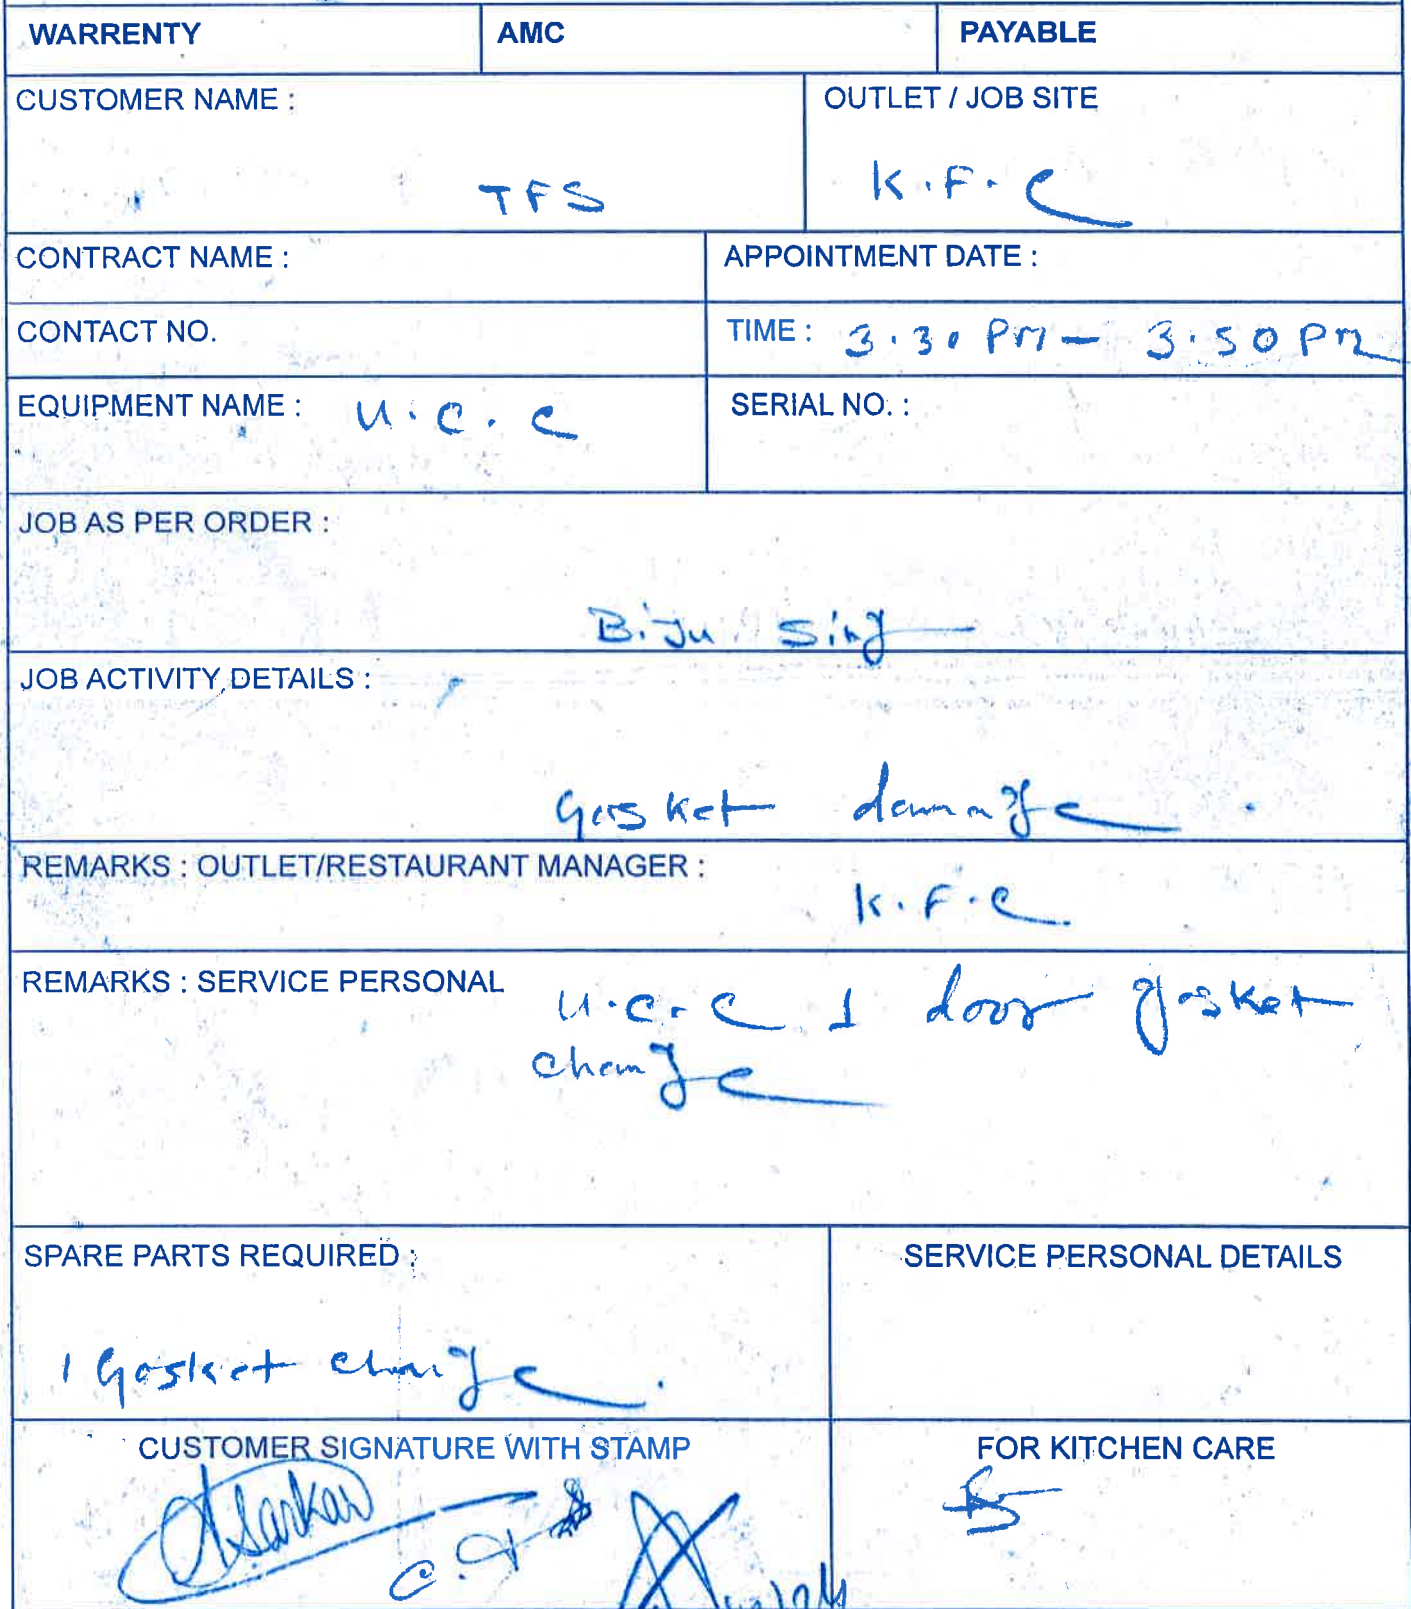 WARRENTY AMC PAYABLE
CUSTOMER NAME : OUTLET / JOB SITE
TFS K.F.C
CONTRACT NAME : APPOINTMENT DATE :
CONTACT NO. TIME : 3.30 PM - 3.50 PM
EQUIPMENT NAME : U.C.C SERIAL NO. :
JOB AS PER ORDER :
Biju Sing
JOB ACTIVITY DETAILS :
Gasket damage .
REMARKS : OUTLET/RESTAURANT MANAGER :
K.F.C
REMARKS : SERVICE PERSONAL U.C.C 1 door gasket
change
SPARE PARTS REQUIRED : SERVICE PERSONAL DETAILS
1 Gasket change .
CUSTOMER SIGNATURE WITH STAMP FOR KITCHEN CARE
Sarkar